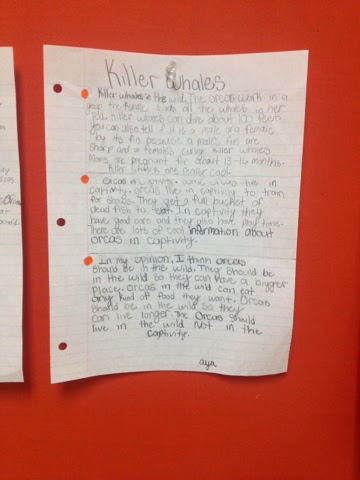 Killer Whales
Killer whales in the wild. The orcas work in a
group the female leads all the whales in her
pod. Killer whales can dive about 100 feet.
you can also tell if it is a male or a female
by its fin because a males fin are
sharp and a females curvy. Killer whales
Moms are pregnant for about 13-16 months.
Killer whales are super cool.
Orcas in captivity. Some orcas live in
captivity. orcas live in captivity to train
for shows. They get a full bucket of
dead fish to eat. In captivity they
have good care and they also have play time.
There are lots of cool information about
orcas in captivity.
In my opinion, I think orcas
should be in the wild. They should be
in the wild so they can have a bigger
place. orcas in the wild can eat
any kind of food they want. Orcas
should be in the wild so they
can live longer. The Orcas should
live in the wild not in the
captivity.
aya